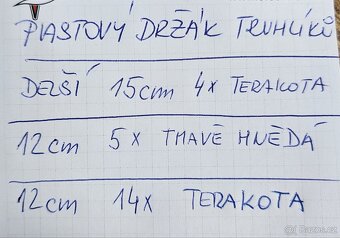 PLASTOVÝ DRŽÁK TRUHLÍKŮ
DELŠÍ 15cm 4x TERAKOTA
12cm 5x TMAVĚ HNĚDÁ
12cm 14x TERAKOTA